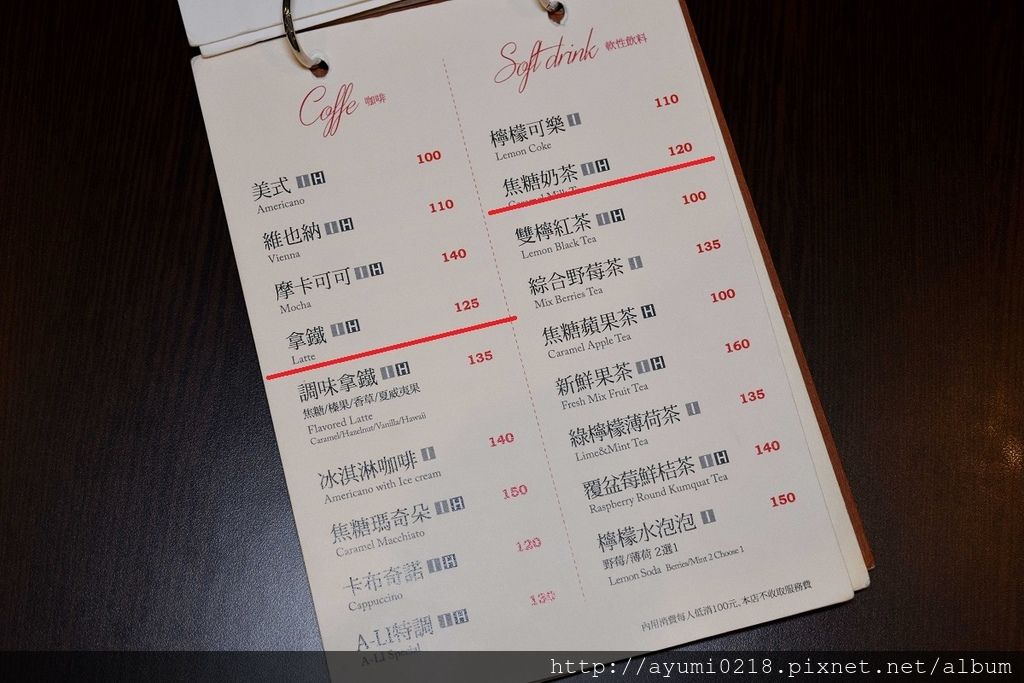 Coffe 咖啡
100
美式 I H
Americano
110
維也納 I H
Vienna
140
摩卡可可 I H
Mocha
125
拿鐵 I H
Latte
135
調味拿鐵 I H
焦糖/榛果/香草/夏威夷果
Flavored Latte
Caramel/Hazelnut/Vanilla/Hawaii
140
冰淇淋咖啡 I
Americano with Ice cream
150
焦糖瑪奇朵 I H
Caramel Macchiato
120
卡布奇諾 I H
Cappuccino
A-LI特調 I H
A-LI Special
Soft drink 軟性飲料
110
檸檬可樂 I
Lemon Coke
120
焦糖奶茶 I H
Caramel Milk T
100
雙檸紅茶 I H
Lemon Black Tea
135
綜合野莓茶 I
Mix Berries Tea
100
焦糖蘋果茶 H
Caramel Apple Tea
160
新鮮果茶 I H
Fresh Mix Fruit Tea
135
綠檸檬薄荷茶 I
Lime&Mint Tea
140
覆盆莓鮮桔茶 I H
Raspberry Round Kumquat Tea
150
檸檬水泡泡 I
野莓/薄荷 2選1
Lemon Soda Berries/Mint 2 Choose 1
內用消費每人低消100元、本店不收取服務費
http://ayumi0218.pixnet.net/album